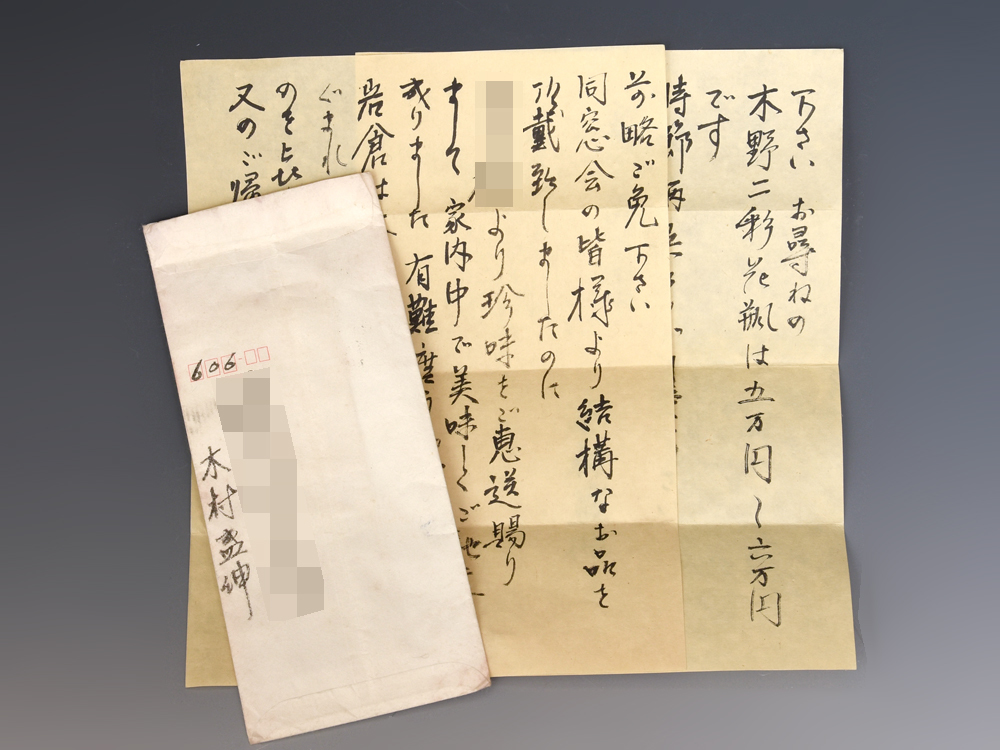 前略ご免下さい
同窓会の皆様より結構なお品を
頂戴致しましたのに
より珍味をご恵送賜り
まして 家内中で美味しくご
成りました 有難度
岩倉は
ぐまれ
のそ
又のご帰
下さい お尋ねの
木野二彩花瓶は五万円〜六万円
です
時節
606
木村盛伸